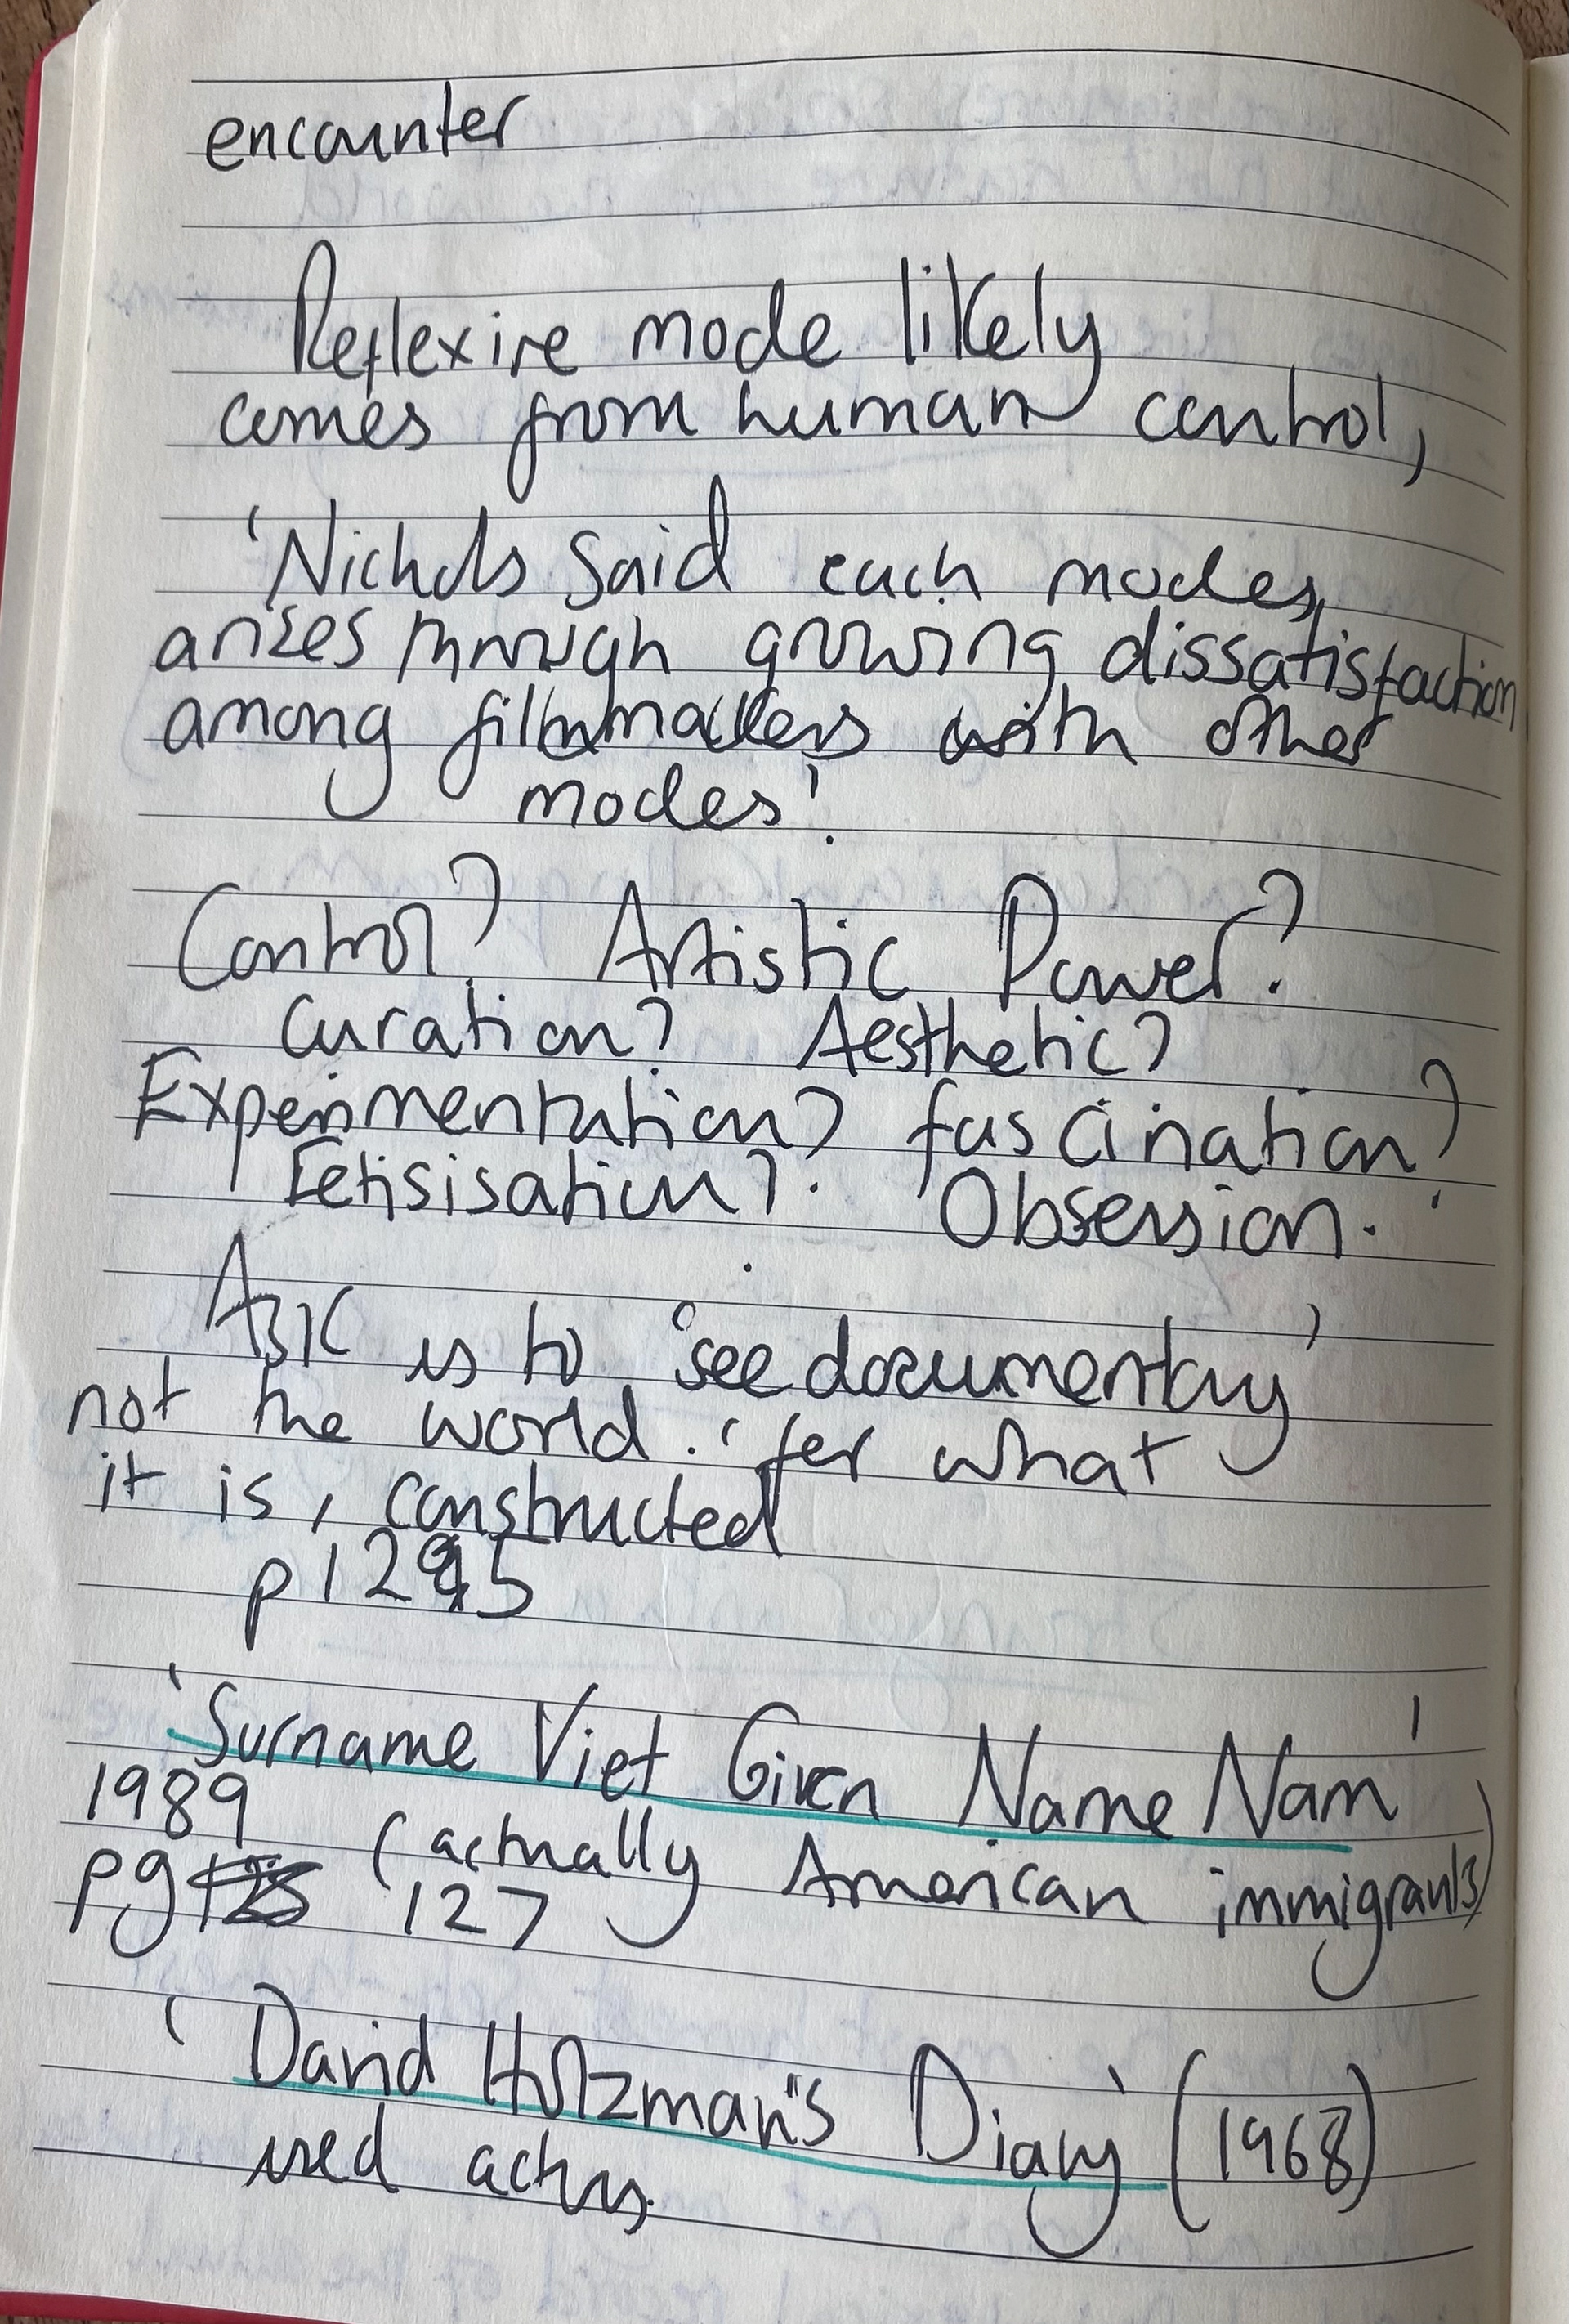 encounter
Reflexive mode likely
comes from human control,
'Nichols said each modes,
arises through growing dissatisfaction
among filmmakers with other
modes'.
Control? Artistic Power?
Curation? Aesthetic?
Experimentation? fascination?
Fetisisation? Obsession.
Ask is to 'see documentary'
not the world. 'for what
it is, constructed
p 125
'Surname Viet Given Name Nam'
1989 (actually American immigrants)
pg 127
'David Holzman's Diary' (1968)
used actors.